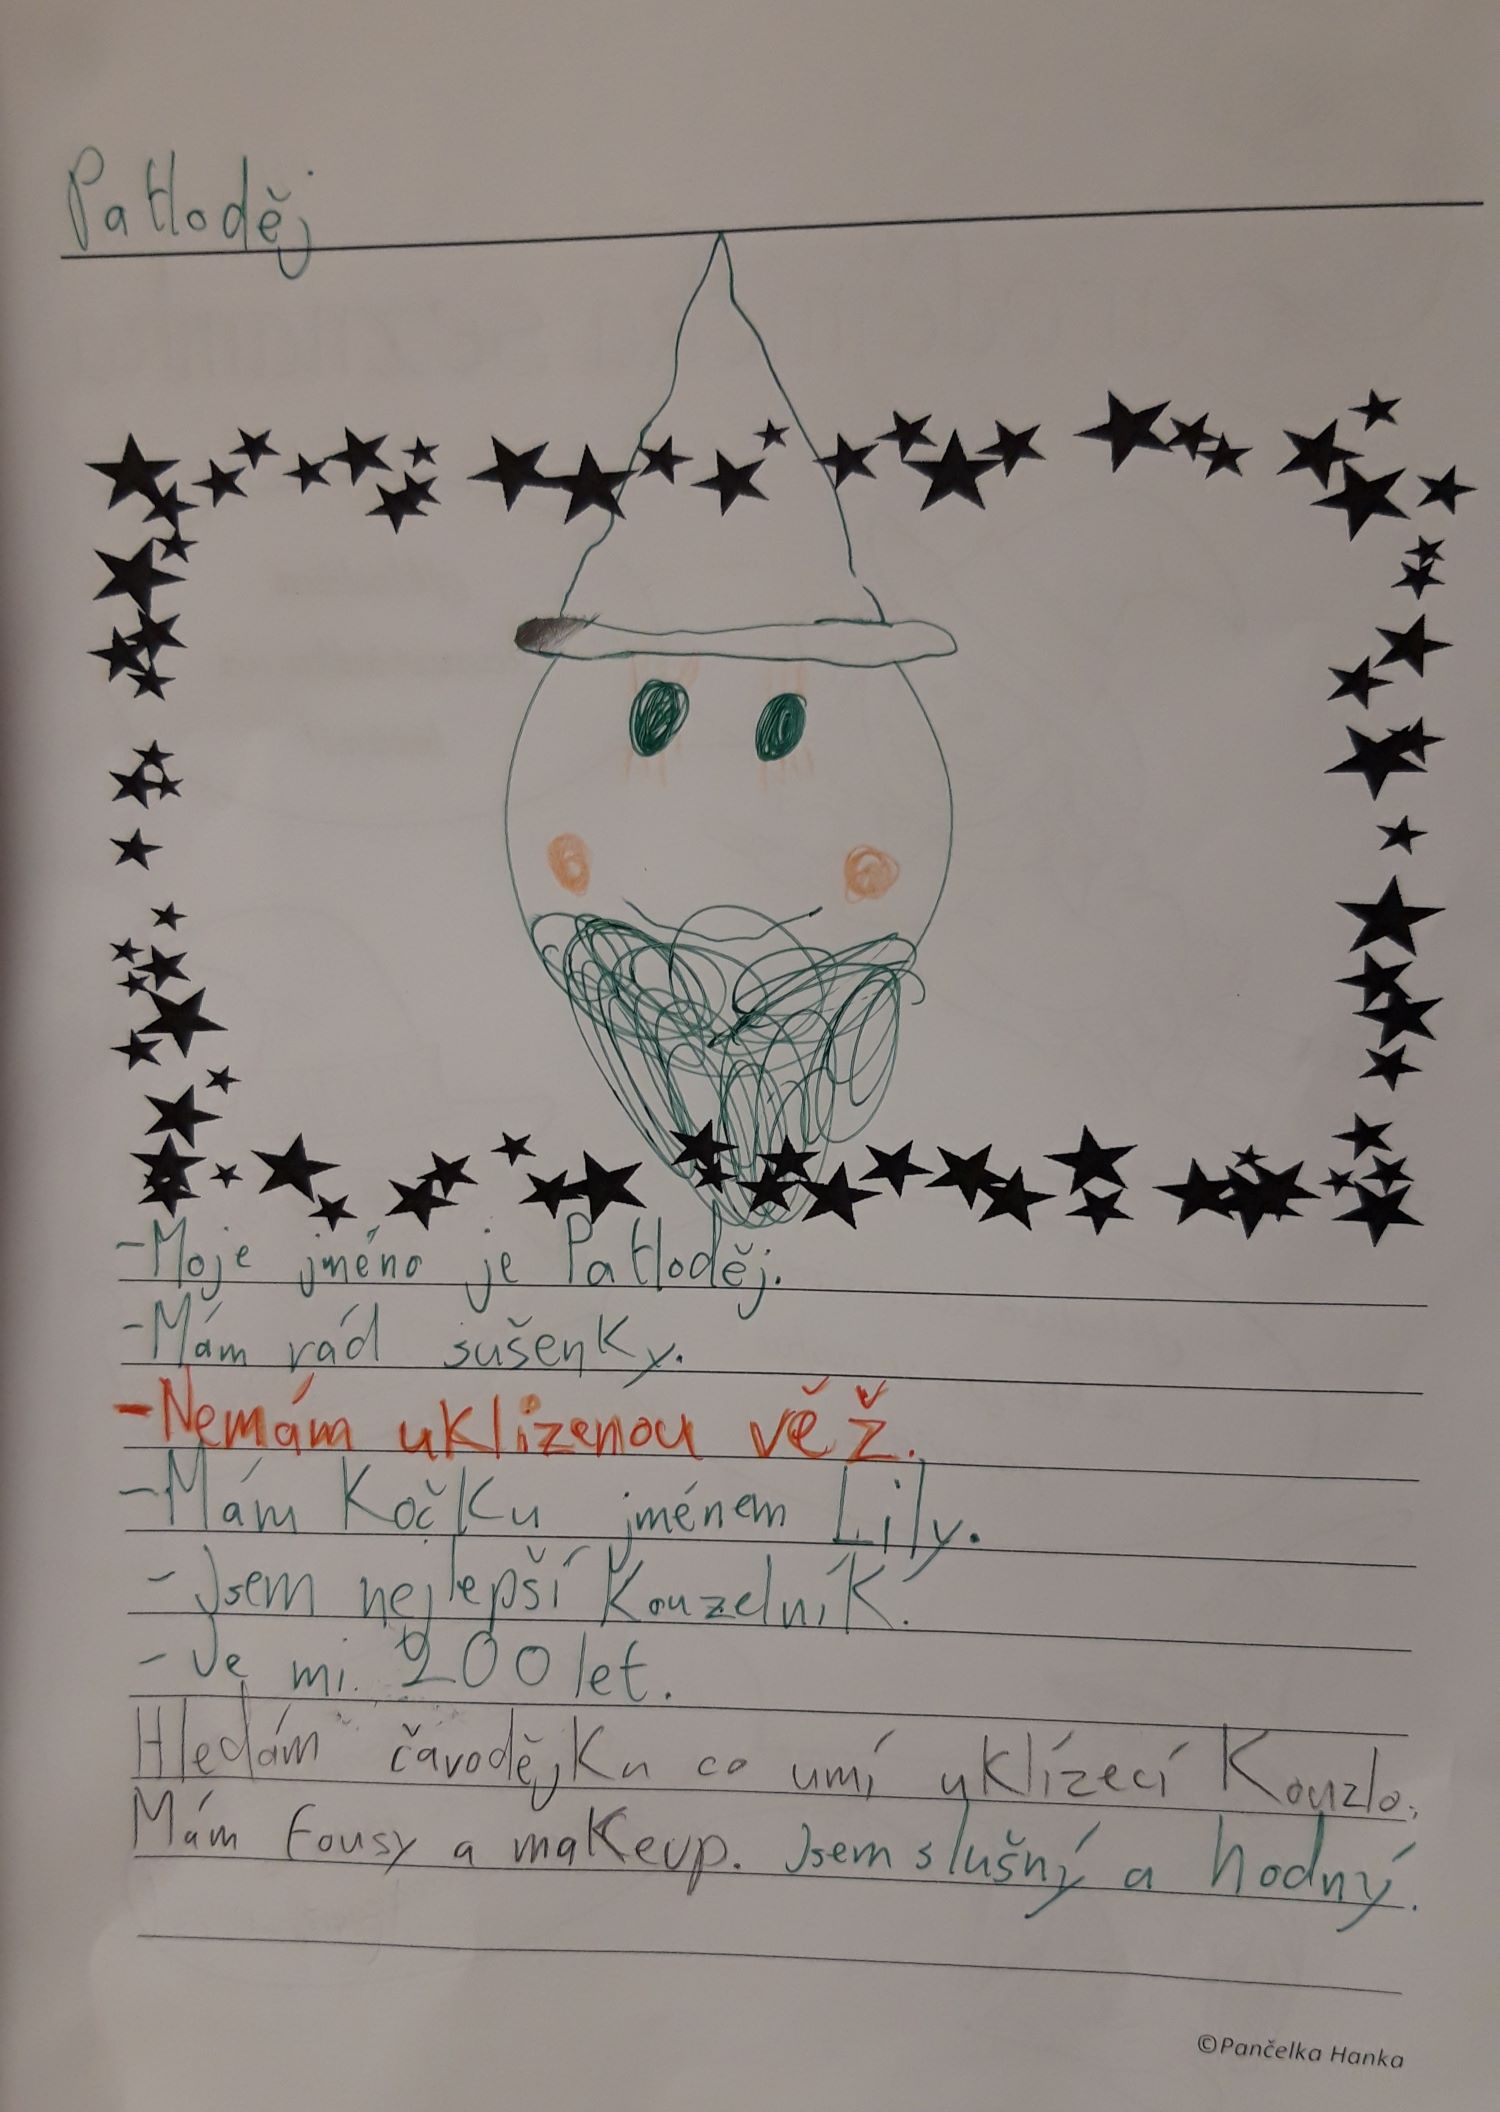 Patloděj
-Moje jméno je Patloděj.
-Mám rád sušenky.
-Nemám uklizenou věž.
-Mám Kočku jménem Lily.
-Jsem nejlepší Kouzelník.
-Je mi. 200 let.
Hledám čávodějKu co umí uklízecí Kouzlo.
Mám fousy a makeup. Jsem slušný a hodný.
©Pančelka Hanka